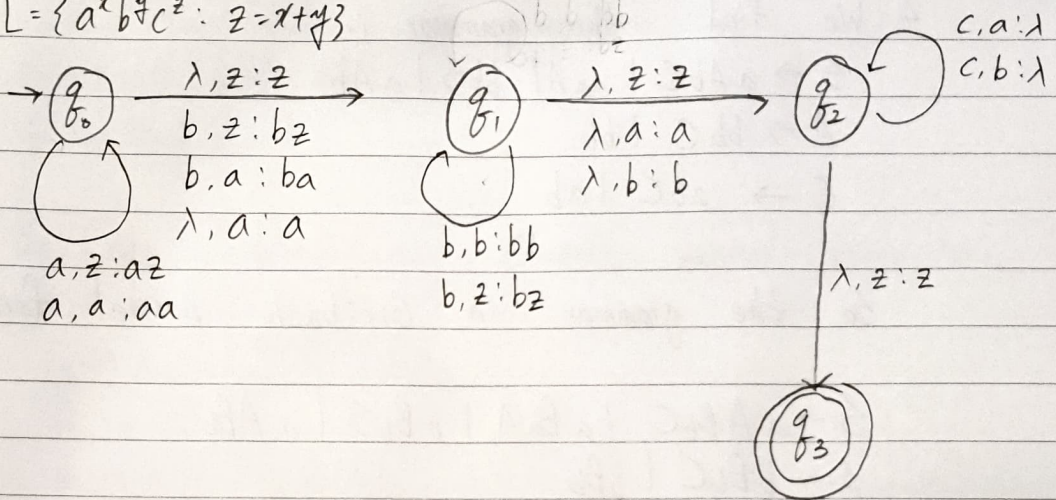 L = {aˣbʸcᶻ : z = x+y}
q₀
λ, z : z
b, z : bz
b, a : ba
λ, a : a
a, z : az
a, a : aa
q₁
b, b : bb
b, z : bz
λ, z : z
λ, a : a
λ, b : b
q₂
c, a : λ
c, b : λ
λ, z : z
q₃